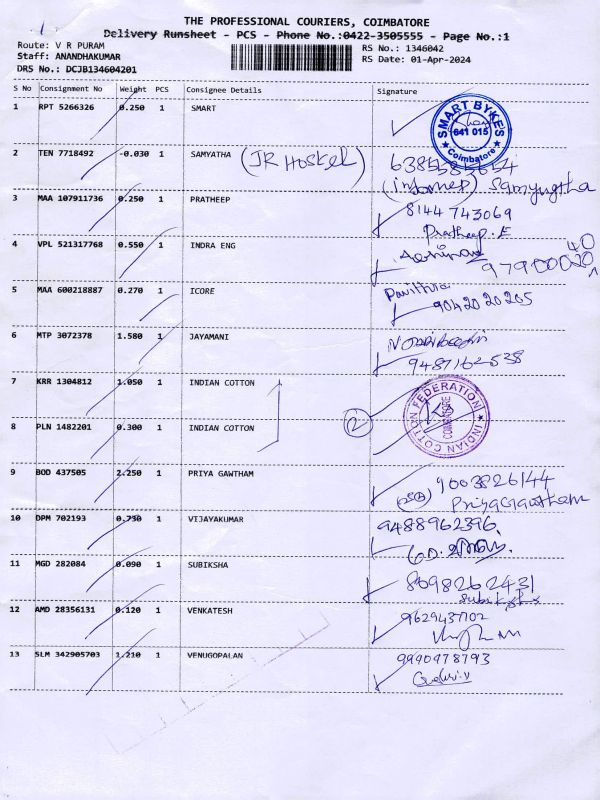 THE PROFESSIONAL COURIERS, COIMBATORE
Delivery Runsheet - PCS - Phone No.:0422-3505555 - Page No.:1
Route: V R PURAM
Staff: ANANDHAKUMAR
DRS No.: DCJB134604201
RS No.: 1346042
RS Date: 01-Apr-2024
S No Consignment No Weight PCS Consignee Details Signature
1 RPT 5266326 0.250 1 SMART
SMART BYKES
641 015
Coimbatore
2 TEN 7718492 -0.030 1 SAMYATHA (JR Hostel)
(informed) Samyugtha
3 MAA 107911736 0.250 1 PRATHEEP 8144 743069
Pratheep.E
4 VPL 521317768 0.550 1 INDRA ENG
5 MAA 600218887 0.270 1 ICORE Pavithra
90420 20205
6 MTP 3072378 1.580 1 JAYAMANI
9487162538
7 KRR 1304812 1.050 1 INDIAN COTTON
8 PLN 1482201 0.300 1 INDIAN COTTON (2)
INDIAN COTTON FEDERATION
COIMBATORE
9 BOD 437505 2.250 1 PRIYA GAWTHAM 9003826144
PriyaGawtham
10 DPM 702193 0.730 1 VIJAYAKUMAR 9488962396
11 MGD 282084 0.090 1 SUBIKSHA 8098262431
Subiksha
12 AMD 28356131 0.120 1 VENKATESH 9629437102
13 SLM 342905703 1.210 1 VENUGOPALAN